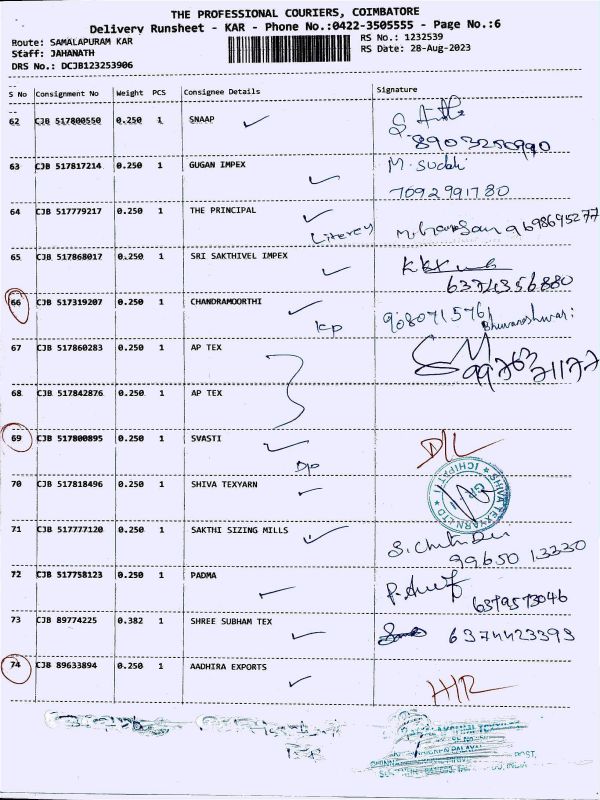 THE PROFESSIONAL COURIERS, COIMBATORE
Delivery Runsheet - KAR - Phone No.:0422-3505555 - Page No.:6
Route: SAMALAPURAM KAR
RS No.: 1232539
Staff: JAHANATH
RS Date: 28-Aug-2023
DRS No.: DCJB123253906
S No Consignment No Weight PCS Consignee Details Signature
62 CJB 517800550 0.250 1 SNAAP
8903250990
63 CJB 517817214 0.250 1 GUGAN IMPEX M. Sudhi
7092991780
64 CJB 517779217 0.250 1 THE PRINCIPAL
9698695277
65 CJB 517868017 0.250 1 SRI SAKTHIVEL IMPEX
6374356880
66 CJB 517319207 0.250 1 CHANDRAMOORTHI
kp 9080715761 Bhuvaneshwari
67 CJB 517860283 0.250 1 AP TEX
68 CJB 517842876 0.250 1 AP TEX
69 CJB 517800895 0.250 1 SVASTI D/L
70 CJB 517818496 0.250 1 SHIVA TEXYARN
SHIVA TEXYARN LTD
71 CJB 517777120 0.250 1 SAKTHI SIZING MILLS
99650 13330
72 CJB 517758123 0.250 1 PADMA
6379573046
73 CJB 89774225 0.382 1 SHREE SUBHAM TEX 6374423393
74 CJB 89633894 0.250 1 AADHIRA EXPORTS
POST,
INDIA